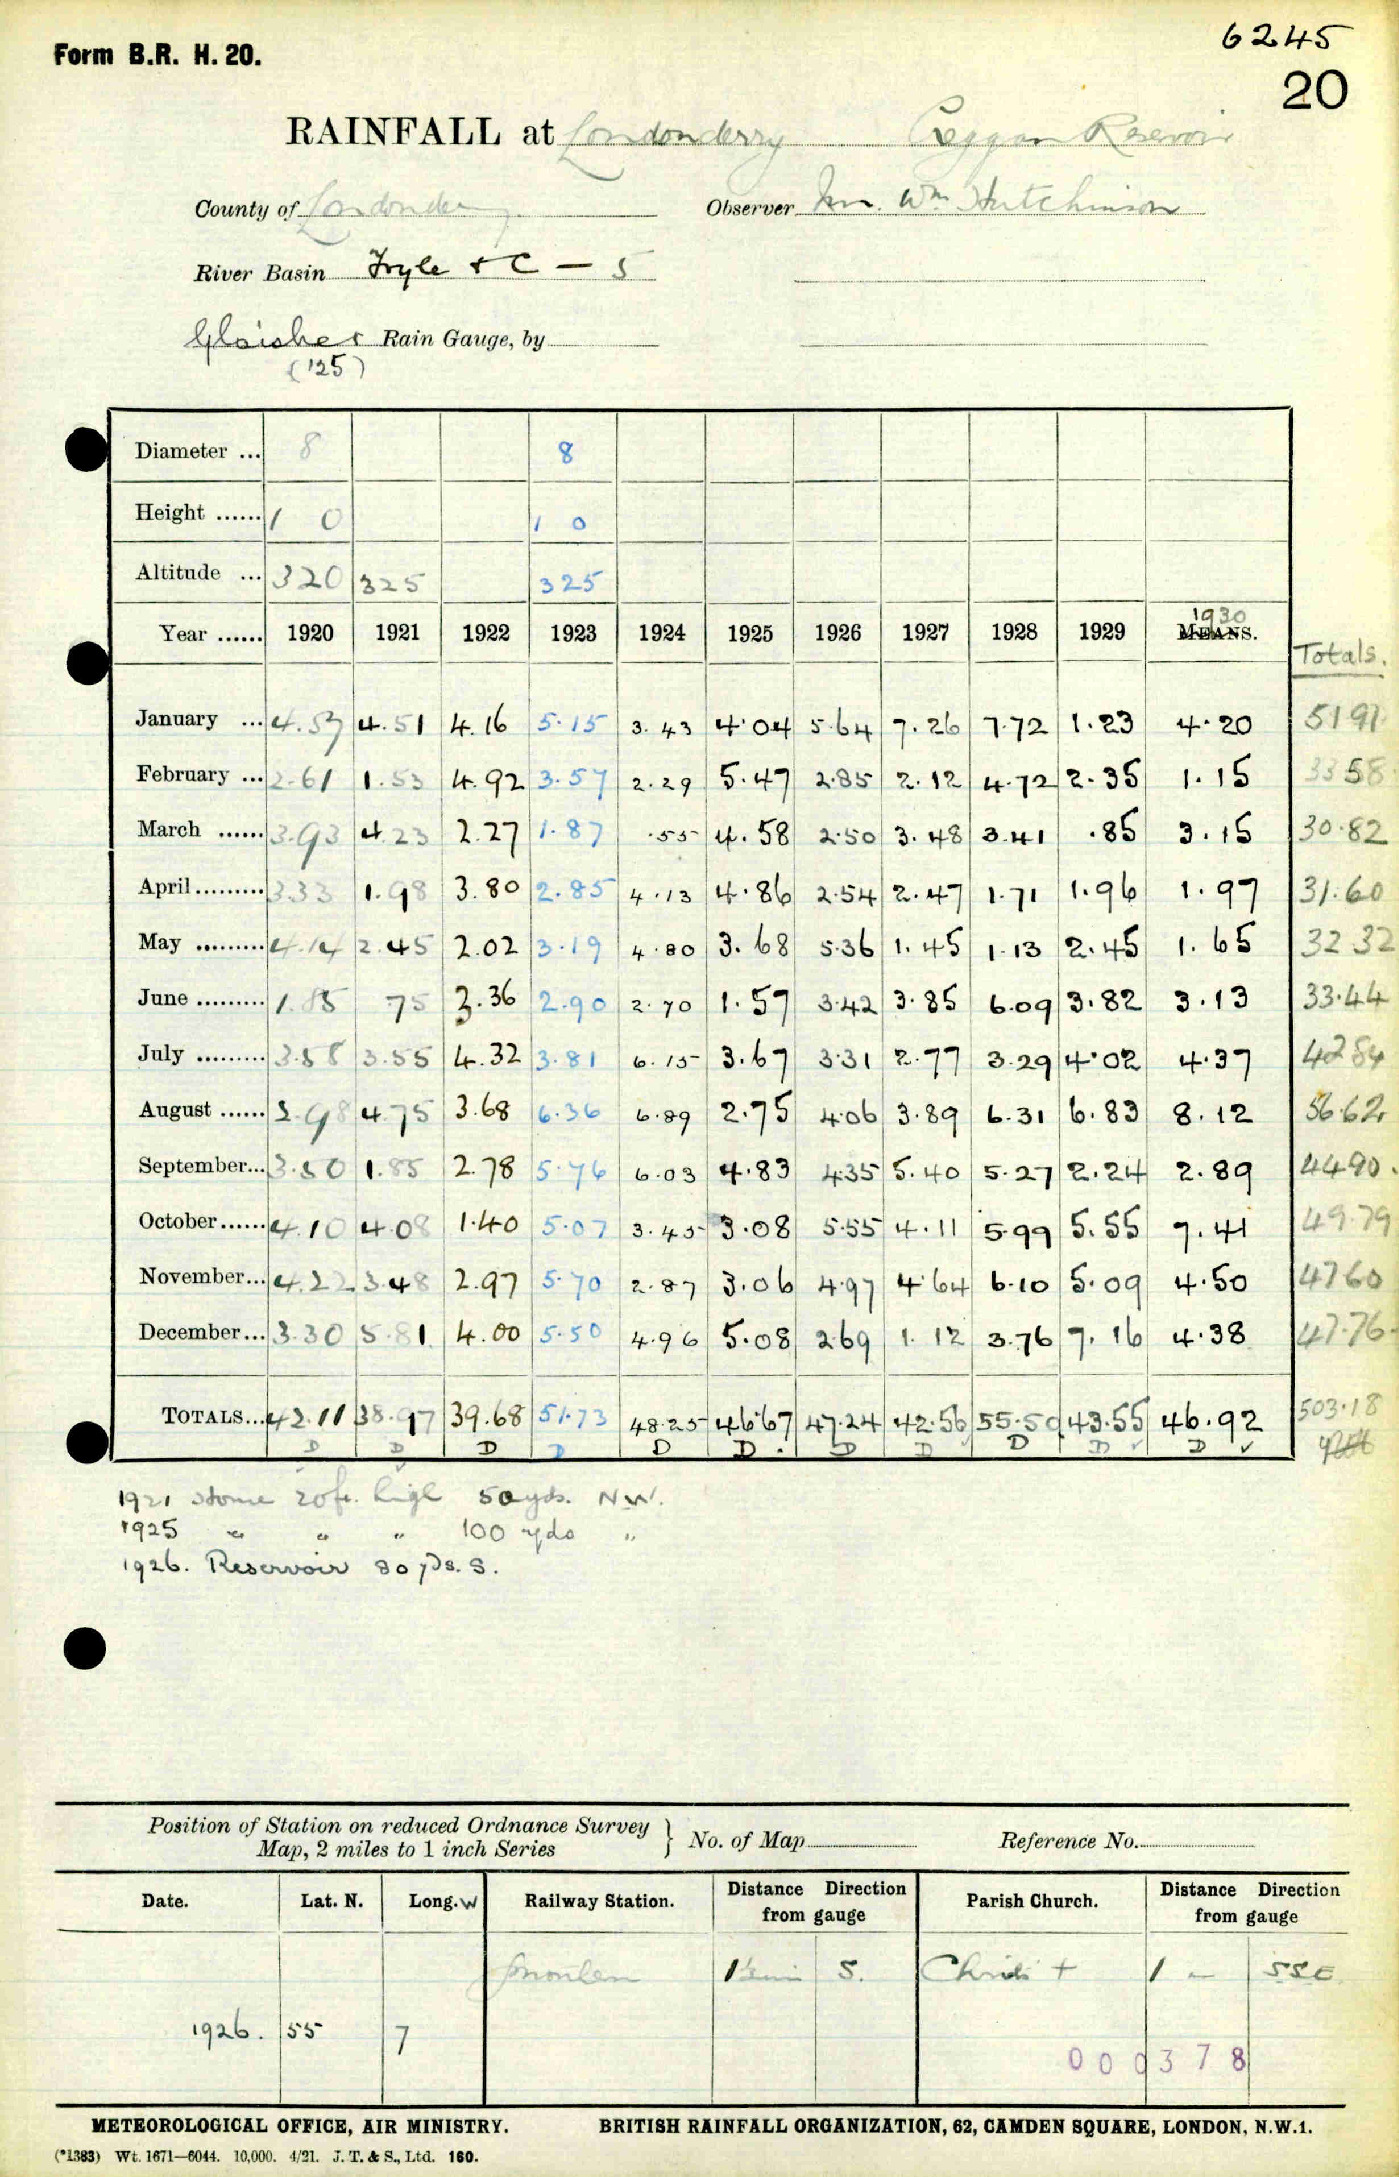 Form B.R. H. 20.
6245
20
RAINFALL at Londonderry Creggan Reservoir
County of Londonderry Observer Mr. Wm Hutchinson
River Basin Foyle & C — 5
Glaisher Rain Gauge, by
(125)
Diameter ... 8 8
Height ...... 1 0 1 0
Altitude ... 320 325 325
Year ...... 1920 1921 1922 1923 1924 1925 1926 1927 1928 1929 MEANS. 1930 Totals.
January ... 4.57 4.51 4.16 5.15 3.43 4.04 5.64 7.26 7.72 1.23 4.20 51 91
February ... 2.61 1.53 4.92 3.57 2.29 5.47 2.85 2.12 4.72 2.35 1.15 33 58
March ...... 3.93 4.23 2.27 1.87 .55 4.58 2.50 3.48 3.41 .85 3.15 30.82
April ......... 3.33 1.98 3.80 2.85 4.13 4.86 2.54 2.47 1.71 1.96 1.97 31.60
May ......... 4.14 2.45 2.02 3.19 4.80 3.68 5.36 1.45 1.13 2.45 1.65 32 32
June ......... 1.85 75 3.36 2.90 2.70 1.57 3.42 3.85 6.09 3.82 3.13 33.44
July ......... 3.58 3.55 4.32 3.81 6.15 3.67 3.31 2.77 3.29 4.02 4.37 42 84
August ...... 2.98 4.75 3.68 6.36 6.89 2.75 4.06 3.89 6.31 6.83 8.12 56.62
September... 3.50 1.85 2.78 5.76 6.03 4.83 4.35 5.40 5.27 2.24 2.89 44.90
October ...... 4.10 4.08 1.40 5.07 3.45 3.08 5.55 4.11 5.99 5.55 7.41 49.79
November... 4.22 3.48 2.97 5.70 2.87 3.06 4.97 4.64 6.10 5.09 4.50 47 60
December... 3.30 5.81 4.00 5.50 4.96 5.08 2.69 1.12 3.76 7.16 4.38 47.76
TOTALS... 42.11 38.97 39.68 51.73 48.25 46.67 47.24 42.56 55.50 43.55 46.92 503.18
D D D D D D D D D D D
1921 House 20ft. high 50 yds. NW.
1925 " " " 100 yds "
1926. Reservoir 80 yds. S.
Position of Station on reduced Ordnance Survey
Map, 2 miles to 1 inch Series } No. of Map Reference No.
Date. Lat. N. Long. W Railway Station. Distance Direction from gauge Parish Church. Distance Direction from gauge
S. Christ + 1 " SSE
1926. 55 7
000378
METEOROLOGICAL OFFICE, AIR MINISTRY. BRITISH RAINFALL ORGANIZATION, 62, CAMDEN SQUARE, LONDON, N.W.1.
(*1383) Wt. 1671—6044. 10,000. 4/21. J. T. & S., Ltd. 160.